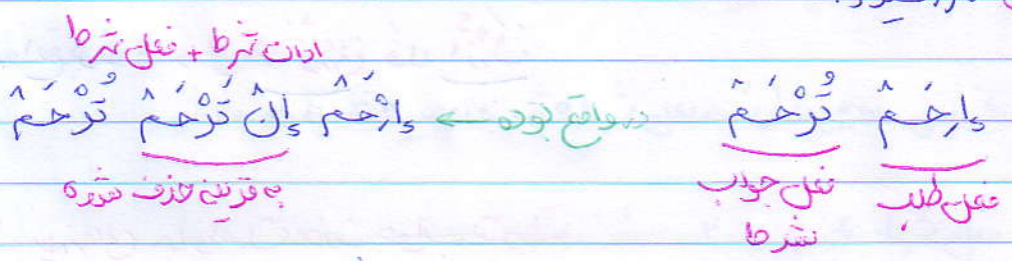 ادات شرط + فعل شرط
إِرْحَمْ تُرْحَمْ در واقع بوده ← إِرْحَمْ إِنْ تَرْحَمْ تُرْحَمْ
فعل طلب فعل جواب شرط به قرینه حذف شده